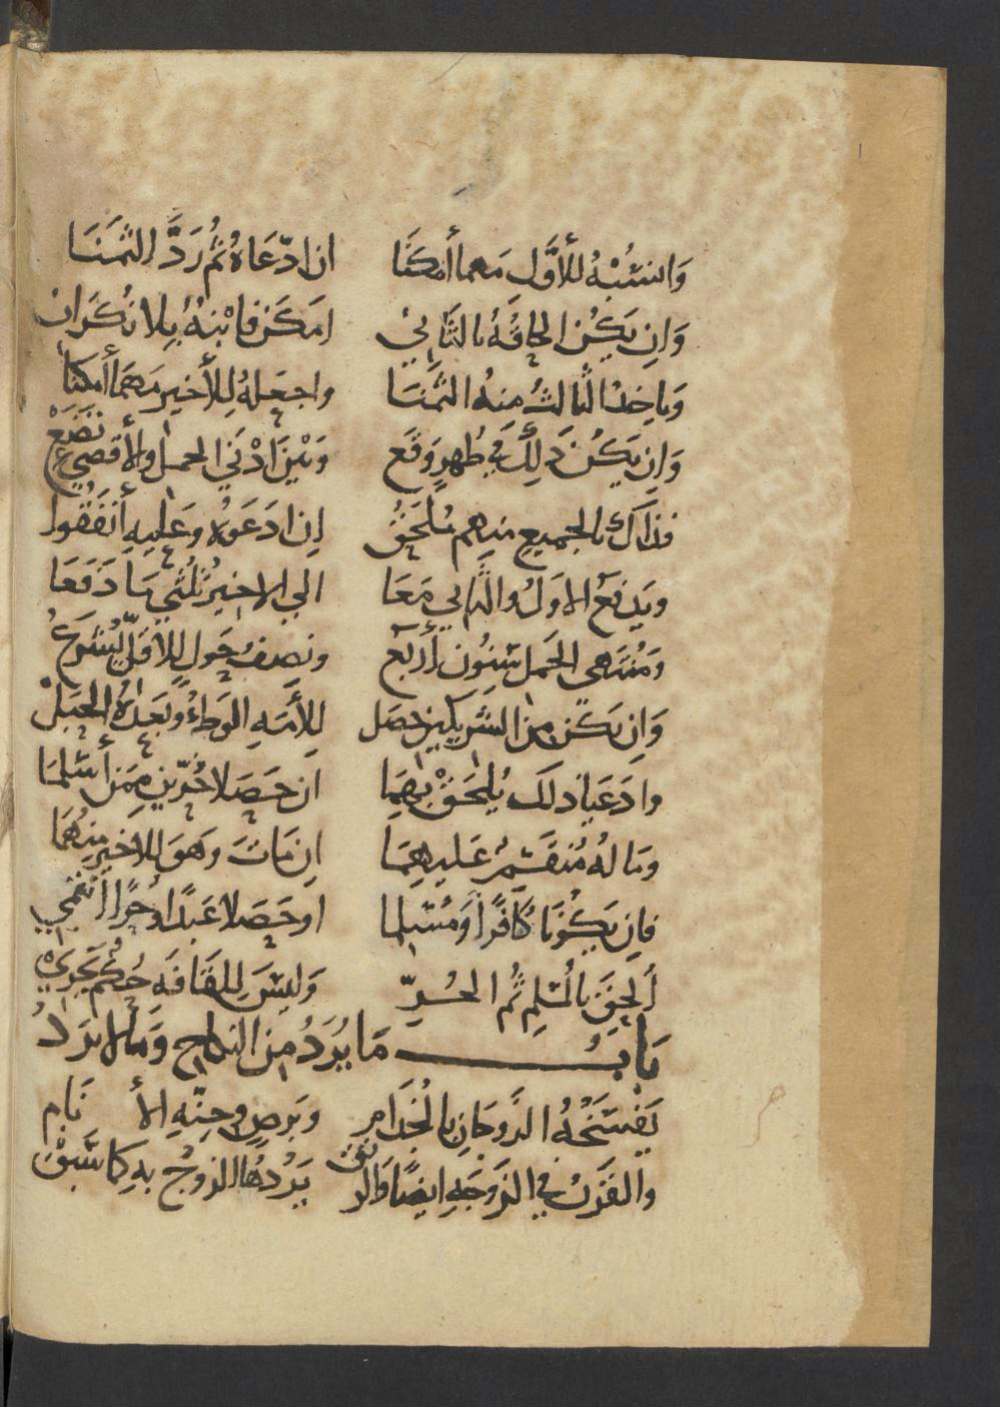 وَانسُبْهُ للأوَّل مَهما أمكنَا ان ادّعَاهُ ثُم رَدَّ الثمَنَا
وَان يَكُن الحاقهُ بالثَّاني امكَن فابْنهُ بِلا نُكرَان
وياخذ الثالثُ منهُ الثَّمنَا واجعَلهُ لِلأخير مَهمَا أمكنا
وَان يَكُن ذلك في طُهرٍ وَقَع وَبَيْنَ ادْنَي الحمل والأقصي تضَعْ
فذاك بالجميع منهم مُلحَقُ إن ادعَوهُ وعَليهِ أنفَقُوا
ويَدفعُ الاوّلُ والثاني مَعَا الي الاخيرِ ثُلثي مَا دَفَعَا
وَمُنتَهى الحَمل سنُون أربَع ونصفُ حَولٍ للاقَلّ يُشرَعُ
وَان يَكُن من الشريكين حصَل لِلأَمَهِ الوَطءُ وبَعدَهُ الحَبَلْ
وادعَيا ذلكَ يُلحَقْ بهِمَا ان حَصَلا حُرّينِ مِمَن أسلمَا
وَمالهُ مُنقَسمٌ عَليهِمَا ان مَاتَ وهوَ للاخير منهُمَا
فان يَكُونَا كَافرًا وَمُسلِما اوحَصَلا عَبدًا اوحُرًّا انتُمي
أُلحِقَ بالمُسْلمِ ثُم الحُرِّ وَليسَ لِلقَافَه حُكم يَجري
بَابُ مَا يُرَدُ مِن النكاح وَمَا لا يرَدُ
يَفسَخُهُ الزَّوجَانِ بالجُذَامِ وبَرَصٍ وجِنّهِ الأنَامِ
والقَرَنُ في الزَوجَهِ ايضًا وَالرتَق يَرُدُهَا الزوجُ بهِ كمَا سَبَقْ